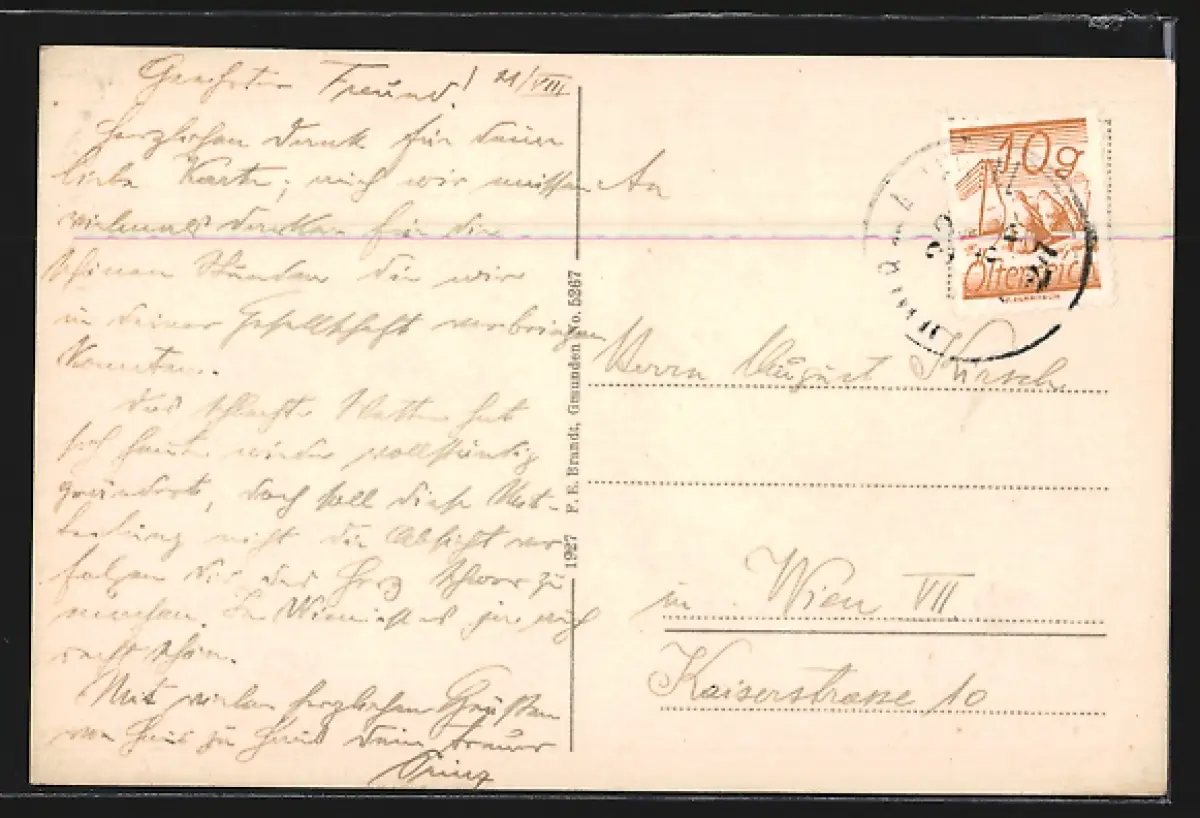 Geehrter Freund! 21/VIII
herzlichen Dank für deine
liebe Karte; auch wir müssen
vielmals danken für die
schönen Stunden die wir
in deiner Gesellschaft verbringen
konnten.
Das schlechte Wetter hat
sich heute wieder vollständig
geändert, doch soll diese
nicht die Absicht ver-
folgen dir das Herz schwer zu
machen. In Wien ist es ja auch
recht schön.
Mit vielen herzlichen Grüßen
von Haus zu Haus dein treuer
1927 F. E. Brandt, Gmunden No. 5267
10g
Österreich
22
27
An
Herrn August Kirsch
in Wien VII
Kaiserstrasse 10